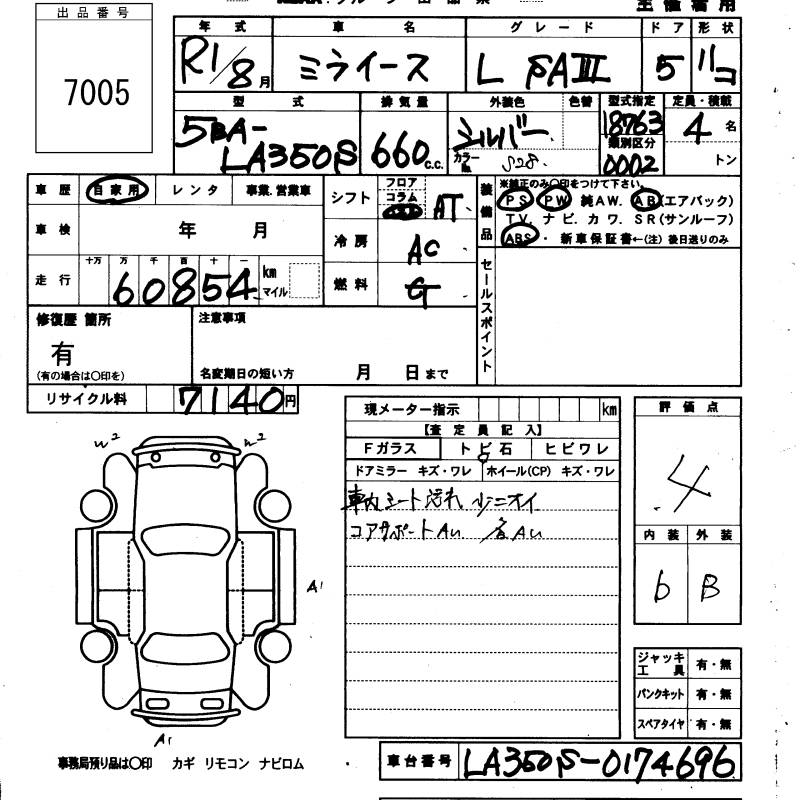 出品番号
7005
年式 車名 グレード ドア 形状
R1/8月 ミライース L SAIII 5 ハコ
型式 排気量 外装色 色替 型式指定 定員・積載
5BA-LA350S 660c.c. シルバー 18763 4名
カラーNo. S28 類別区分 0002 トン
車歴 自家用 レンタ 事業.営業車
シフト フロア コラム AT
装備品 ※純正のみ〇印をつけて下さい。
PS PW 純AW. AB(エアバック)
TV. ナビ. カワ. SR(サンルーフ)
ABS・ 新車保証書←(注)後日送りのみ
車検 年 月
冷房 AC
走行 十万 万 千 百 十 一
60854 km マイル
燃料 G
セールスポイント
修復歴 箇所
有
(有の場合は〇印を)
注意事項
名変期日の短い方 月 日まで
リサイクル料 7140円
現メーター指示 km
【査定員記入】
Fガラス トビ石 ヒビワレ
ドアミラー キズ・ワレ ホイール(CP) キズ・ワレ
車内シート汚れ 少ニオイ
コアサポートAU
評価点
4
内装 外装
b B
W2 W2
A1
A1
ジャッキ工具 有・無
パンクキット 有・無
スペアタイヤ 有・無
事務局預り品は〇印 カギ リモコン ナビロム
車台番号 LA350S-0174696